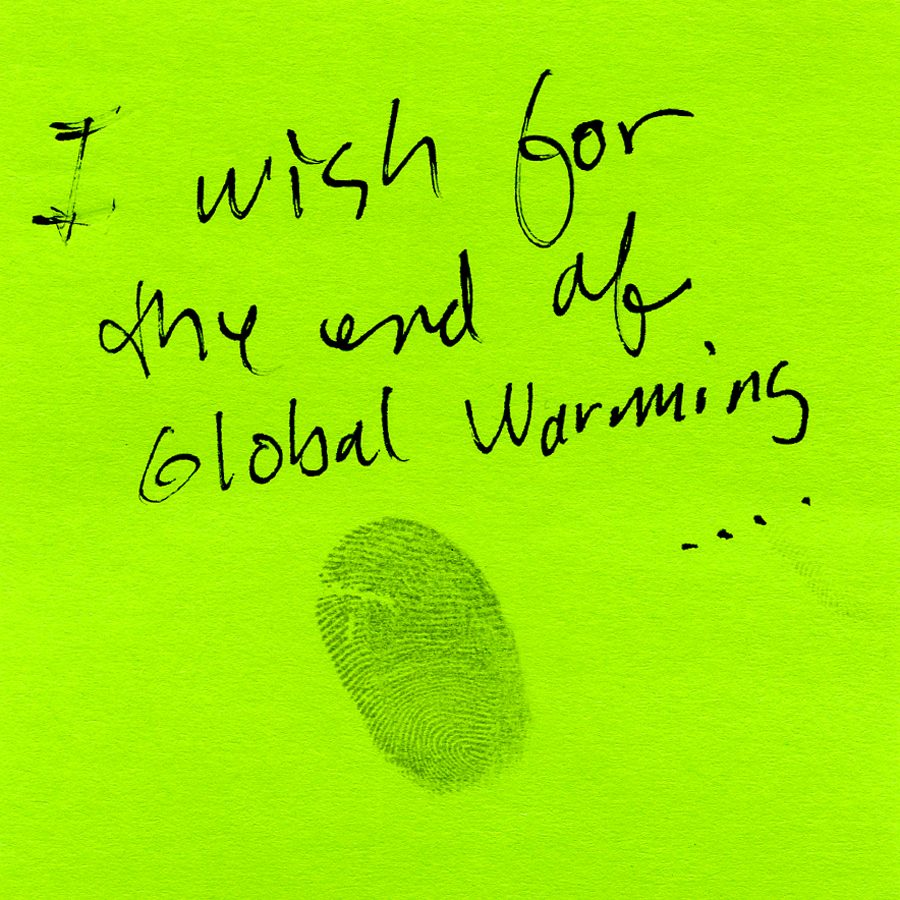 I wish for
the end of
Global Warming
....